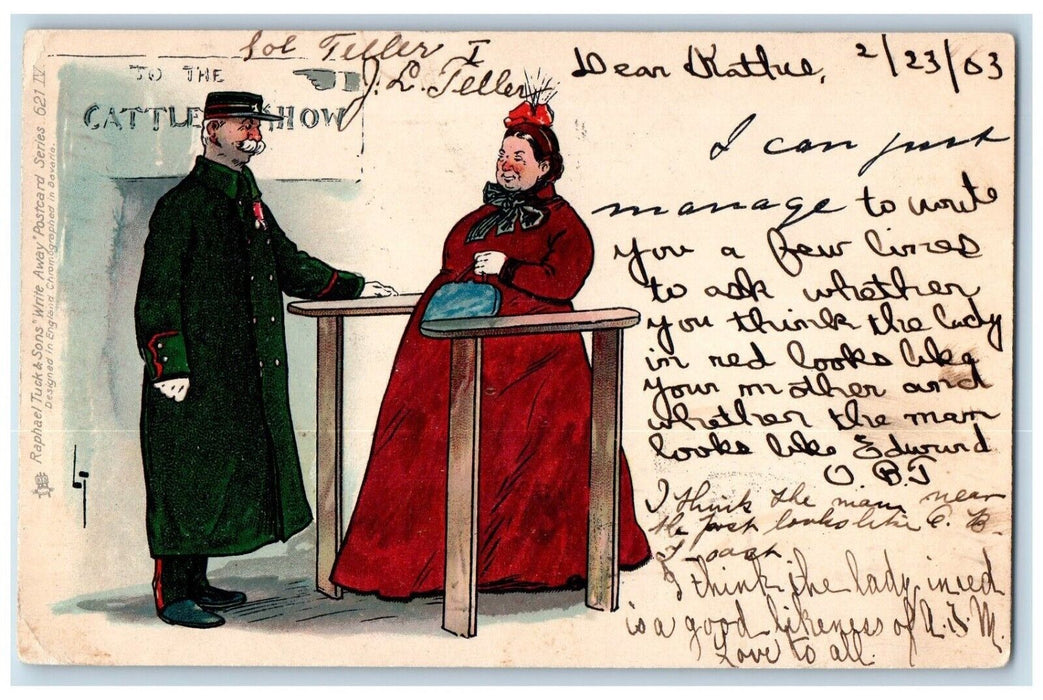 Sol Teller I
J. L. Teller
TO THE
CATTLE SHOW
Raphael Tuck & Sons' "Write Away" Postcard Series 621 IV
Designed in England. Chromographed in Bavaria.
Dear Kathie, 2/23/03
I can just
manage to write
you a few lines
to ask whether
you think the lady
in red looks like
your mother and
whether the man
looks like Edward
O B T
I think the man near
the post looks like C. B.
I think the lady in red
is a good likeness of A. S. M.
Love to all.